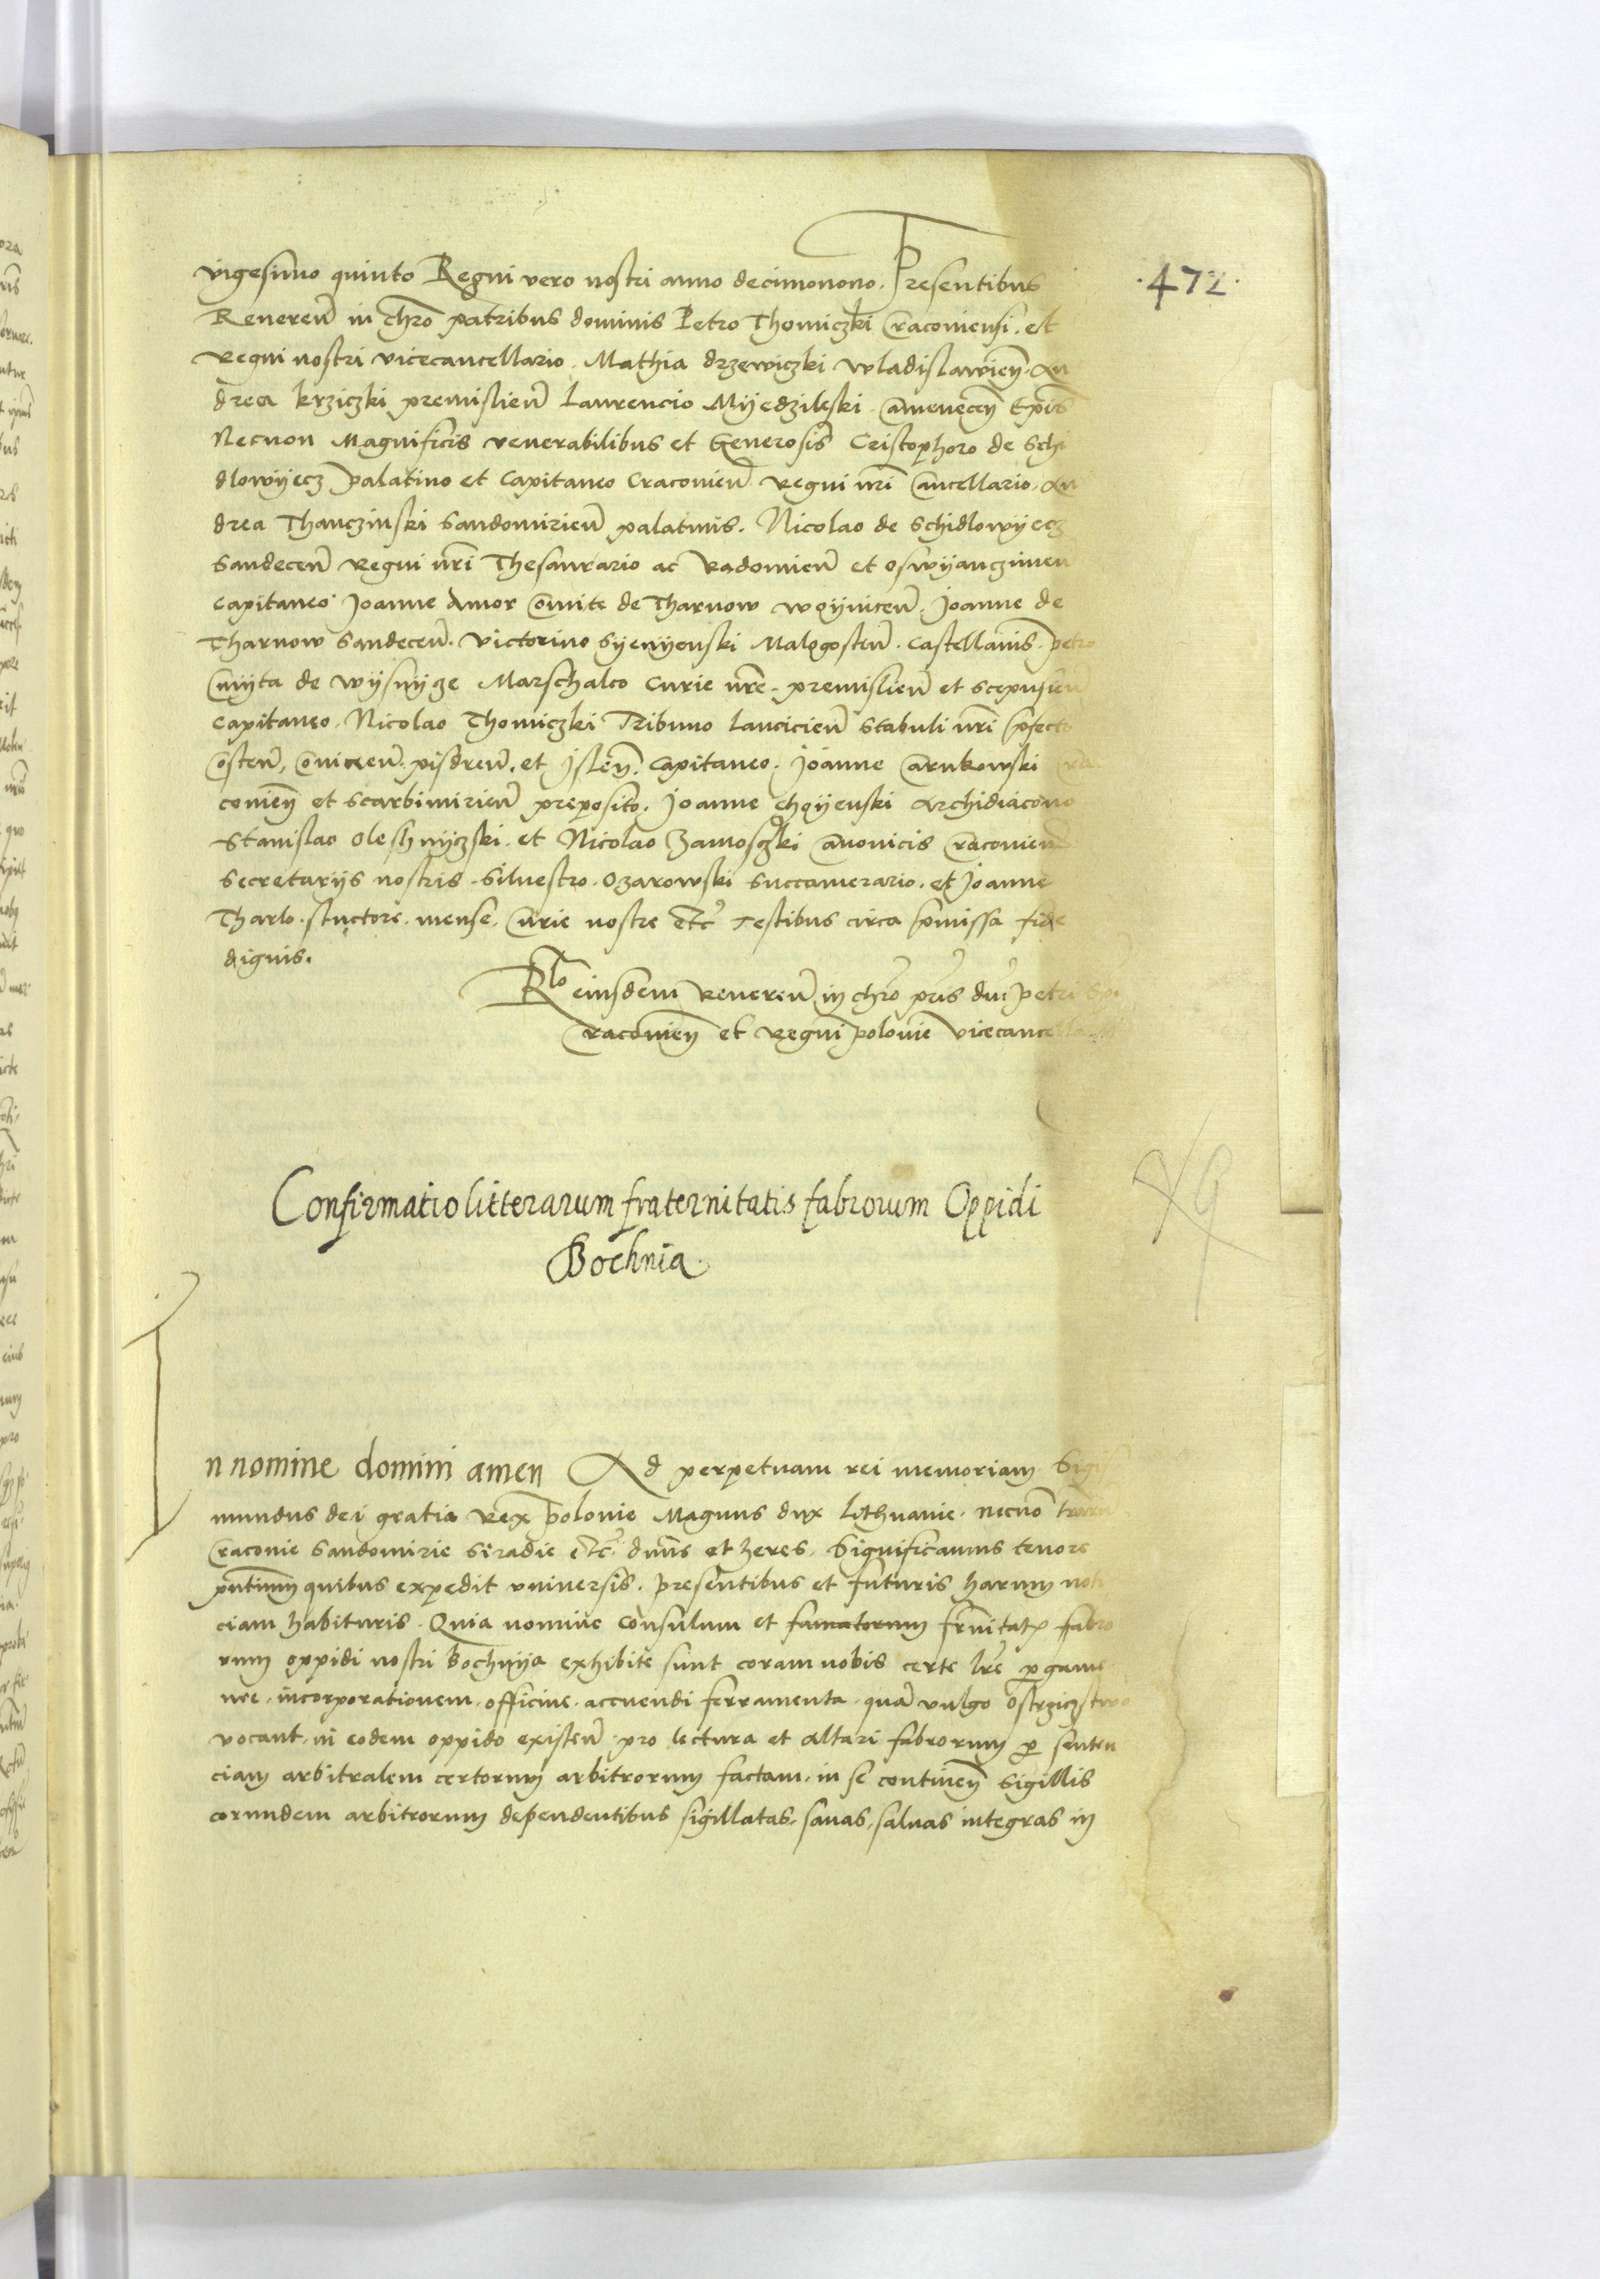 ·472·
vigesimo quinto Regni vero nostri anno decimonono. Presentibus
Reveren̄ in chr̄o patribus dominis Petro Thomiczki Cracoviensi. et
Regni nostri vicecancellario. Mathia drzewiczki wladislavien̄. An
drea krziczki premislien̄ Laurencio Myedzileski. Camenecen̄ Ep̄is
Necnon Magnificis venerabilibus et Generosis Cristophoro de Schi
dlowyecz palatino et Capitaneo Cracovien̄ Regni nr̄i Cancellario. An
drea Thanczinski Sandomirien̄ palatinis. Nicolao de Schidlowyecz
Sandecen̄ Regni nr̄i Thesaurario ac Radomien̄ et oswyanczimen
capitaneo Joanne Amor Comite de Tharnow woynicen̄. Joanne de
Tharnow Sandecen̄. victorino Syenyenski Malogosten̄. Castellanis. petro
Cmyta de wysnyze Marschalco Curie nr̄e. premislien̄ et scepusien̄
capitaneo. Nicolao Thomiczki Tribuno lancicien̄ stabuli nr̄i p̄fecto
Costen̄, Coninen̄. pisdren̄. et Islen̄. capitaneo. Joanne Carnkowski Cra
covien̄ et scarbimirien̄ preposito. Joanne Choyenski Archidiacono
Stanislao oleschnyczski. et Nicolao Zamosczki Canonicis Cracovien̄
Secretariis nostris. Silvestro. Ozarowski Succamerario. et Joanne
Tharlo. structore. mense. Curie nostre etc̄ Testibus circa p̄missa fide
dignis.
R̄lo eiusdem Reveren̄ in chr̄o pr̄is dn̄i petri Ep̄i
Cracovien̄ et Regni polonie vicecancellarii
Confirmatio litterarum fraternitatis fabrorum Oppidi
Bochnia.
In nomine domini amen Ad perpetuam rei memoriam Sigis
mundus dei gratia Rex polonie Magnus dux Lithuanie. necnō terrarum
Cracovie Sandomirie Siradie etc̄. dn̄us et heres. Significamus tenore
pn̄tium quibus expedit universis. presentibus et futuris harum noti
ciam habituris. Quia nomine Consulum et famatorum fr̄nitatis fabro
rum oppidi nostri Bochnya exhibite sunt coram nobis certe lr̄e pergame
nee. incorporationem. officine. accuendi ferramenta. quā vulgo ostrzicz̄stwo
vocant. in eodem oppido existen̄ pro lectura et altari fabrorum per senten
ciam arbitralem certorum arbitrorum factam. in se continen̄ Sigillis
eorundem arbitrorum dependentibus sigillatas. sanas, salvas integras in